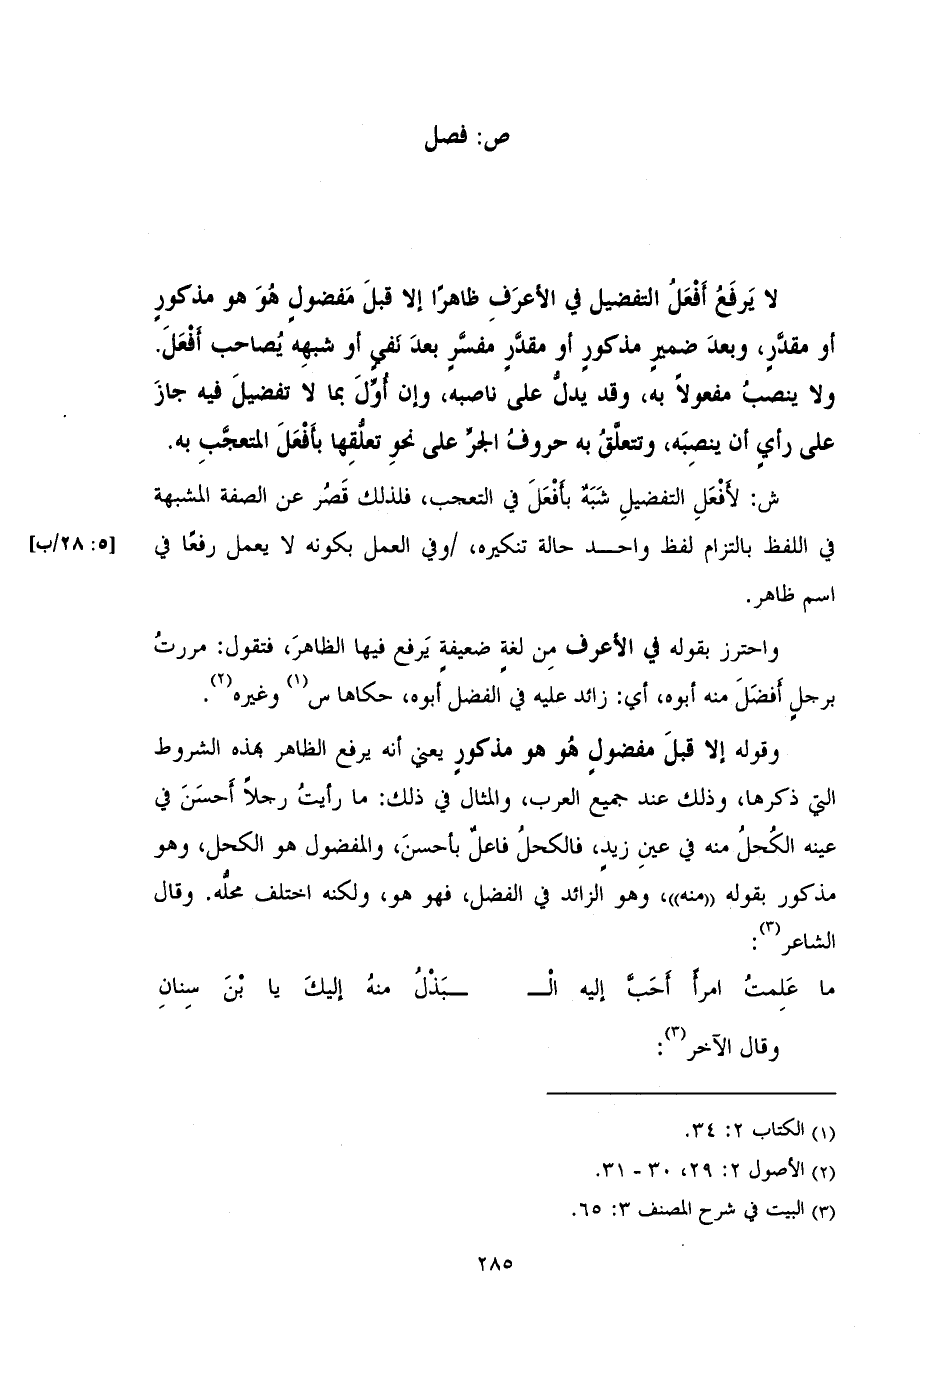 ص: فصل
لا يَرفَعُ أَفْعَلُ التفضيل في الأعرَفِ ظاهرًا إلا قبلَ مَفضولٍ هُوَ هو مذكورٍ
أو مقدَّرٍ، وبعدَ ضميرٍ مذكورٍ أو مقدَّرٍ مفسَّرٍ بعدَ نَفيٍ أو شبهِه يُصاحب أَفْعَلَ.
ولا ينصبُ مفعولاً به، وقد يدلُّ على ناصبه، وإن أُوِّلَ بما لا تفضيلَ فيه جازَ
على رأيٍ أن ينصِبَه، وتتعلَّقُ به حروفُ الجرِّ على نحوِ تعلُّقِها بأَفْعَلَ المتعجَّبِ به.
ش: لأَفْعَلِ التفضيلِ شَبَهٌ بأَفْعَلَ في التعجب، فلذلك قَصُر عن الصفة المشبهة
في اللفظ بالتزام لفظ واحــد حالة تنكيره، /وفي العمل بكونه لا يعمل رفعًا في [٥: ٢٨/ب]
اسم ظاهر.
واحترز بقوله في الأعرف مِن لغةٍ ضعيفةٍ يَرفع فيها الظاهرَ، فتقول: مررتُ
برجلٍ أَفضَلَ منه أبوه، أي: زائد عليه في الفضل أبوه، حكاها س(١) وغيره(٢).
وقوله إلا قبلَ مفضولٍ هُو هو مذكورٍ يعني أنه يرفع الظاهر بهذه الشروط
التي ذكرها، وذلك عند جميع العرب، والمثال في ذلك: ما رأيتُ رجلاً أَحسَنَ في
عينه الكُحلُ منه في عينِ زيدٍ، فالكحلُ فاعلٌ بأحسنَ، والمفضول هو الكحل، وهو
مذكور بقوله ((منه))، وهو الزائد في الفضل، فهو هو، ولكنه اختلف محلُّه. وقال
الشاعر(٣):
ما عَلِمتُ امرأً أَحَبَّ إليه الْــ ــبَذْلُ منهُ إليكَ يا بْنَ سِنانِ
وقال الآخر(٣):
(١) الكتاب ٢: ٣٤.
(٢) الأصول ٢: ٢٩، ٣٠ - ٣١.
(٣) البيت في شرح المصنف ٣: ٦٥.
٢٨٥